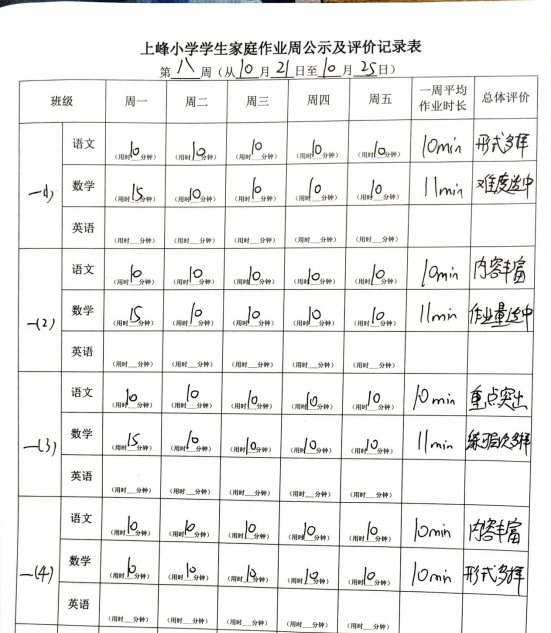 上峰小学学生家庭作业周公示及评价记录表
第 八 周（从 10 月 21 日至 10 月 25 日）
班级 周一 周二 周三 周四 周五 一周平均作业时长 总体评价
一(1) 语文 （用时10分钟） （用时10分钟） （用时10分钟） （用时10分钟） （用时10分钟） 10min 形式多样
数学 （用时15分钟） （用时10分钟） （用时10分钟） （用时10分钟） （用时10分钟） 11min 难度适中
英语 （用时__分钟） （用时__分钟） （用时__分钟） （用时__分钟） （用时__分钟）
一(2) 语文 （用时10分钟） （用时10分钟） （用时10分钟） （用时10分钟） （用时10分钟） 10min 内容丰富
数学 （用时15分钟） （用时10分钟） （用时10分钟） （用时10分钟） （用时10分钟） 11min 作业量适中
英语 （用时__分钟） （用时__分钟） （用时__分钟） （用时__分钟） （用时__分钟）
一(3) 语文 （用时10分钟） （用时10分钟） （用时10分钟） （用时10分钟） （用时10分钟） 10min 重点突出
数学 （用时15分钟） （用时10分钟） （用时10分钟） （用时10分钟） （用时10分钟） 11min 练习层次多样
英语 （用时__分钟） （用时__分钟） （用时__分钟） （用时__分钟） （用时__分钟）
一(4) 语文 （用时10分钟） （用时10分钟） （用时10分钟） （用时10分钟） （用时10分钟） 10min 内容丰富
数学 （用时10分钟） （用时10分钟） （用时10分钟） （用时10分钟） （用时10分钟） 10min 形式多样
英语 （用时__分钟） （用时__分钟） （用时__分钟） （用时__分钟） （用时__分钟）